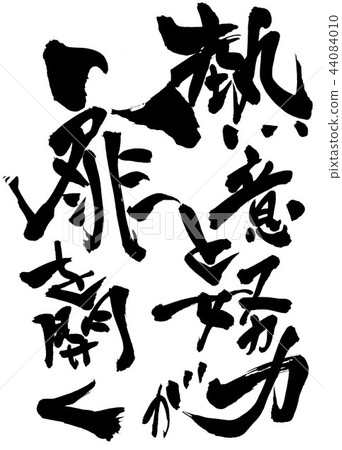 熱意と努力が
扉を開く
44084010